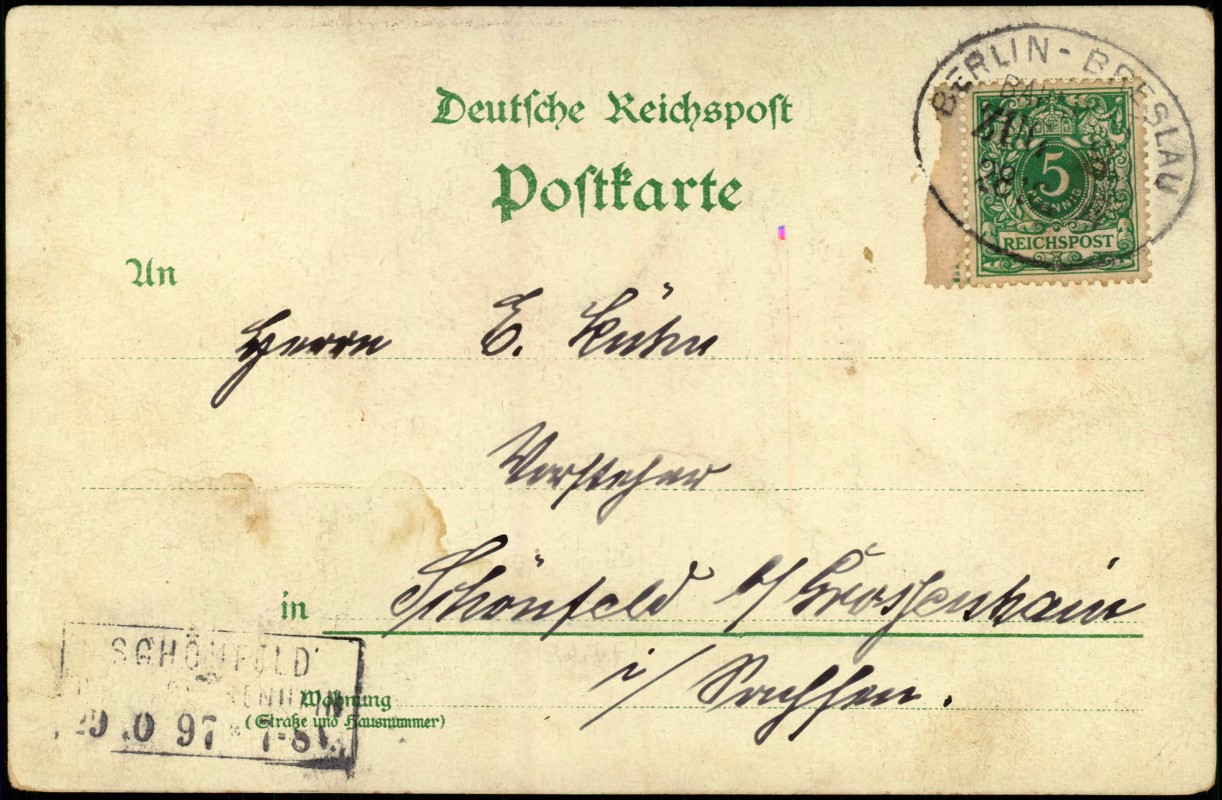 Deutsche Reichspost
Postkarte
BERLIN - BRESLAU
5
PFENNIG
REICHSPOST
An
Herrn E. Kühn
Vorsteher
in Schönfeld b/ Grossenhain
i/ Sachsen.
SCHÖNFELD
97 7-8
Wohnung
(Straße und Hausnummer)